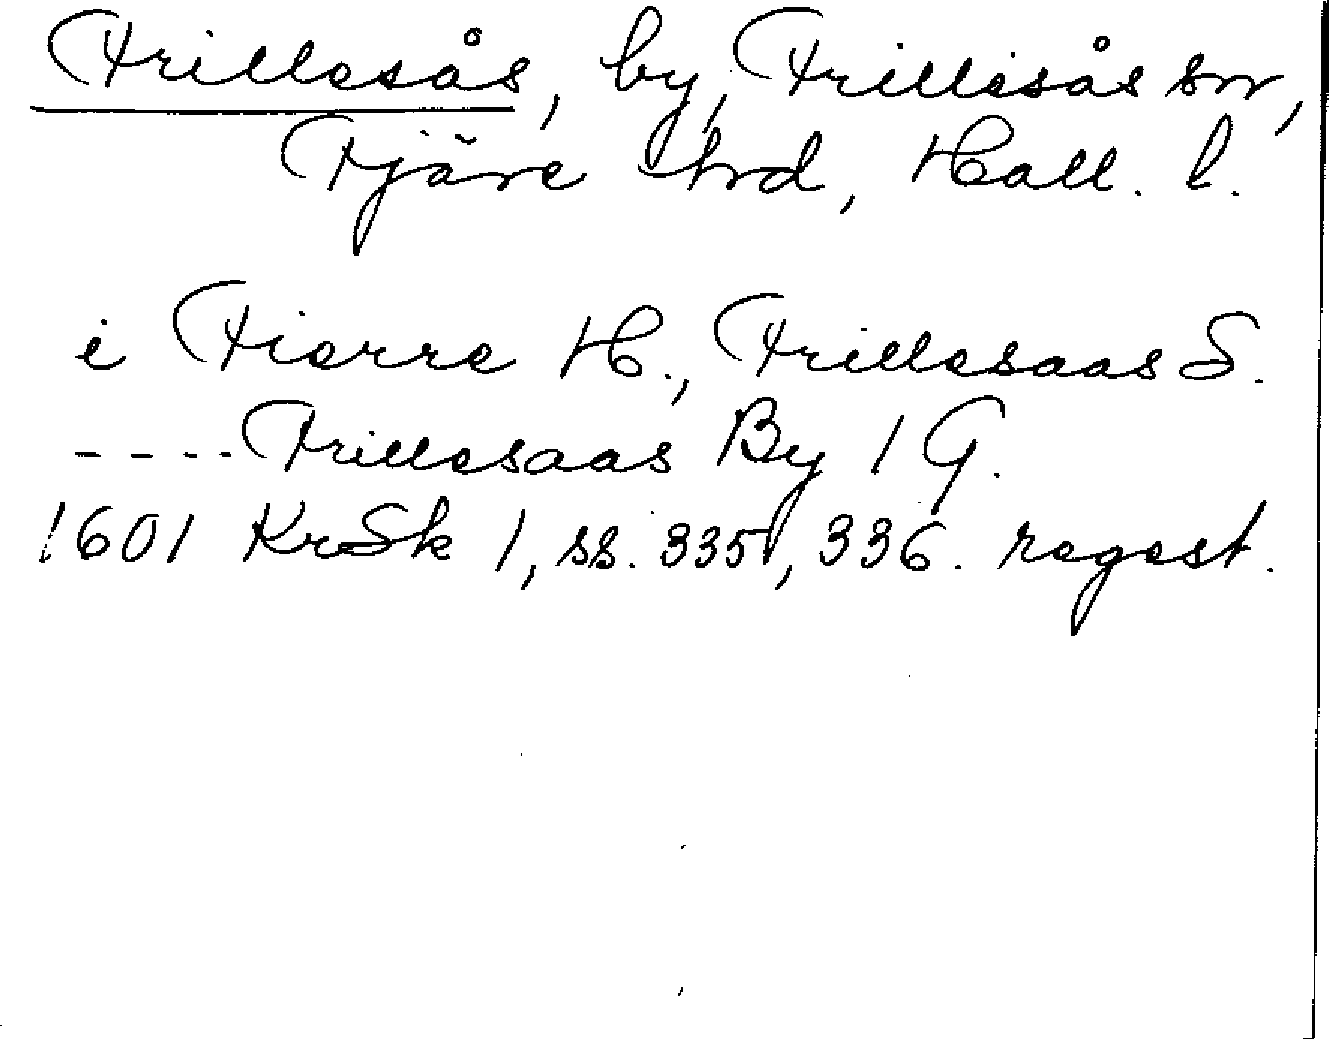 Frillesås, by, Frillesås sn,
Fjäre hrd, Hall. l.
i Fierre H., Frillesaas S.
---- Frillesaas By 1 G.
1601 KrSk 1, ss. 335, 336. regest.